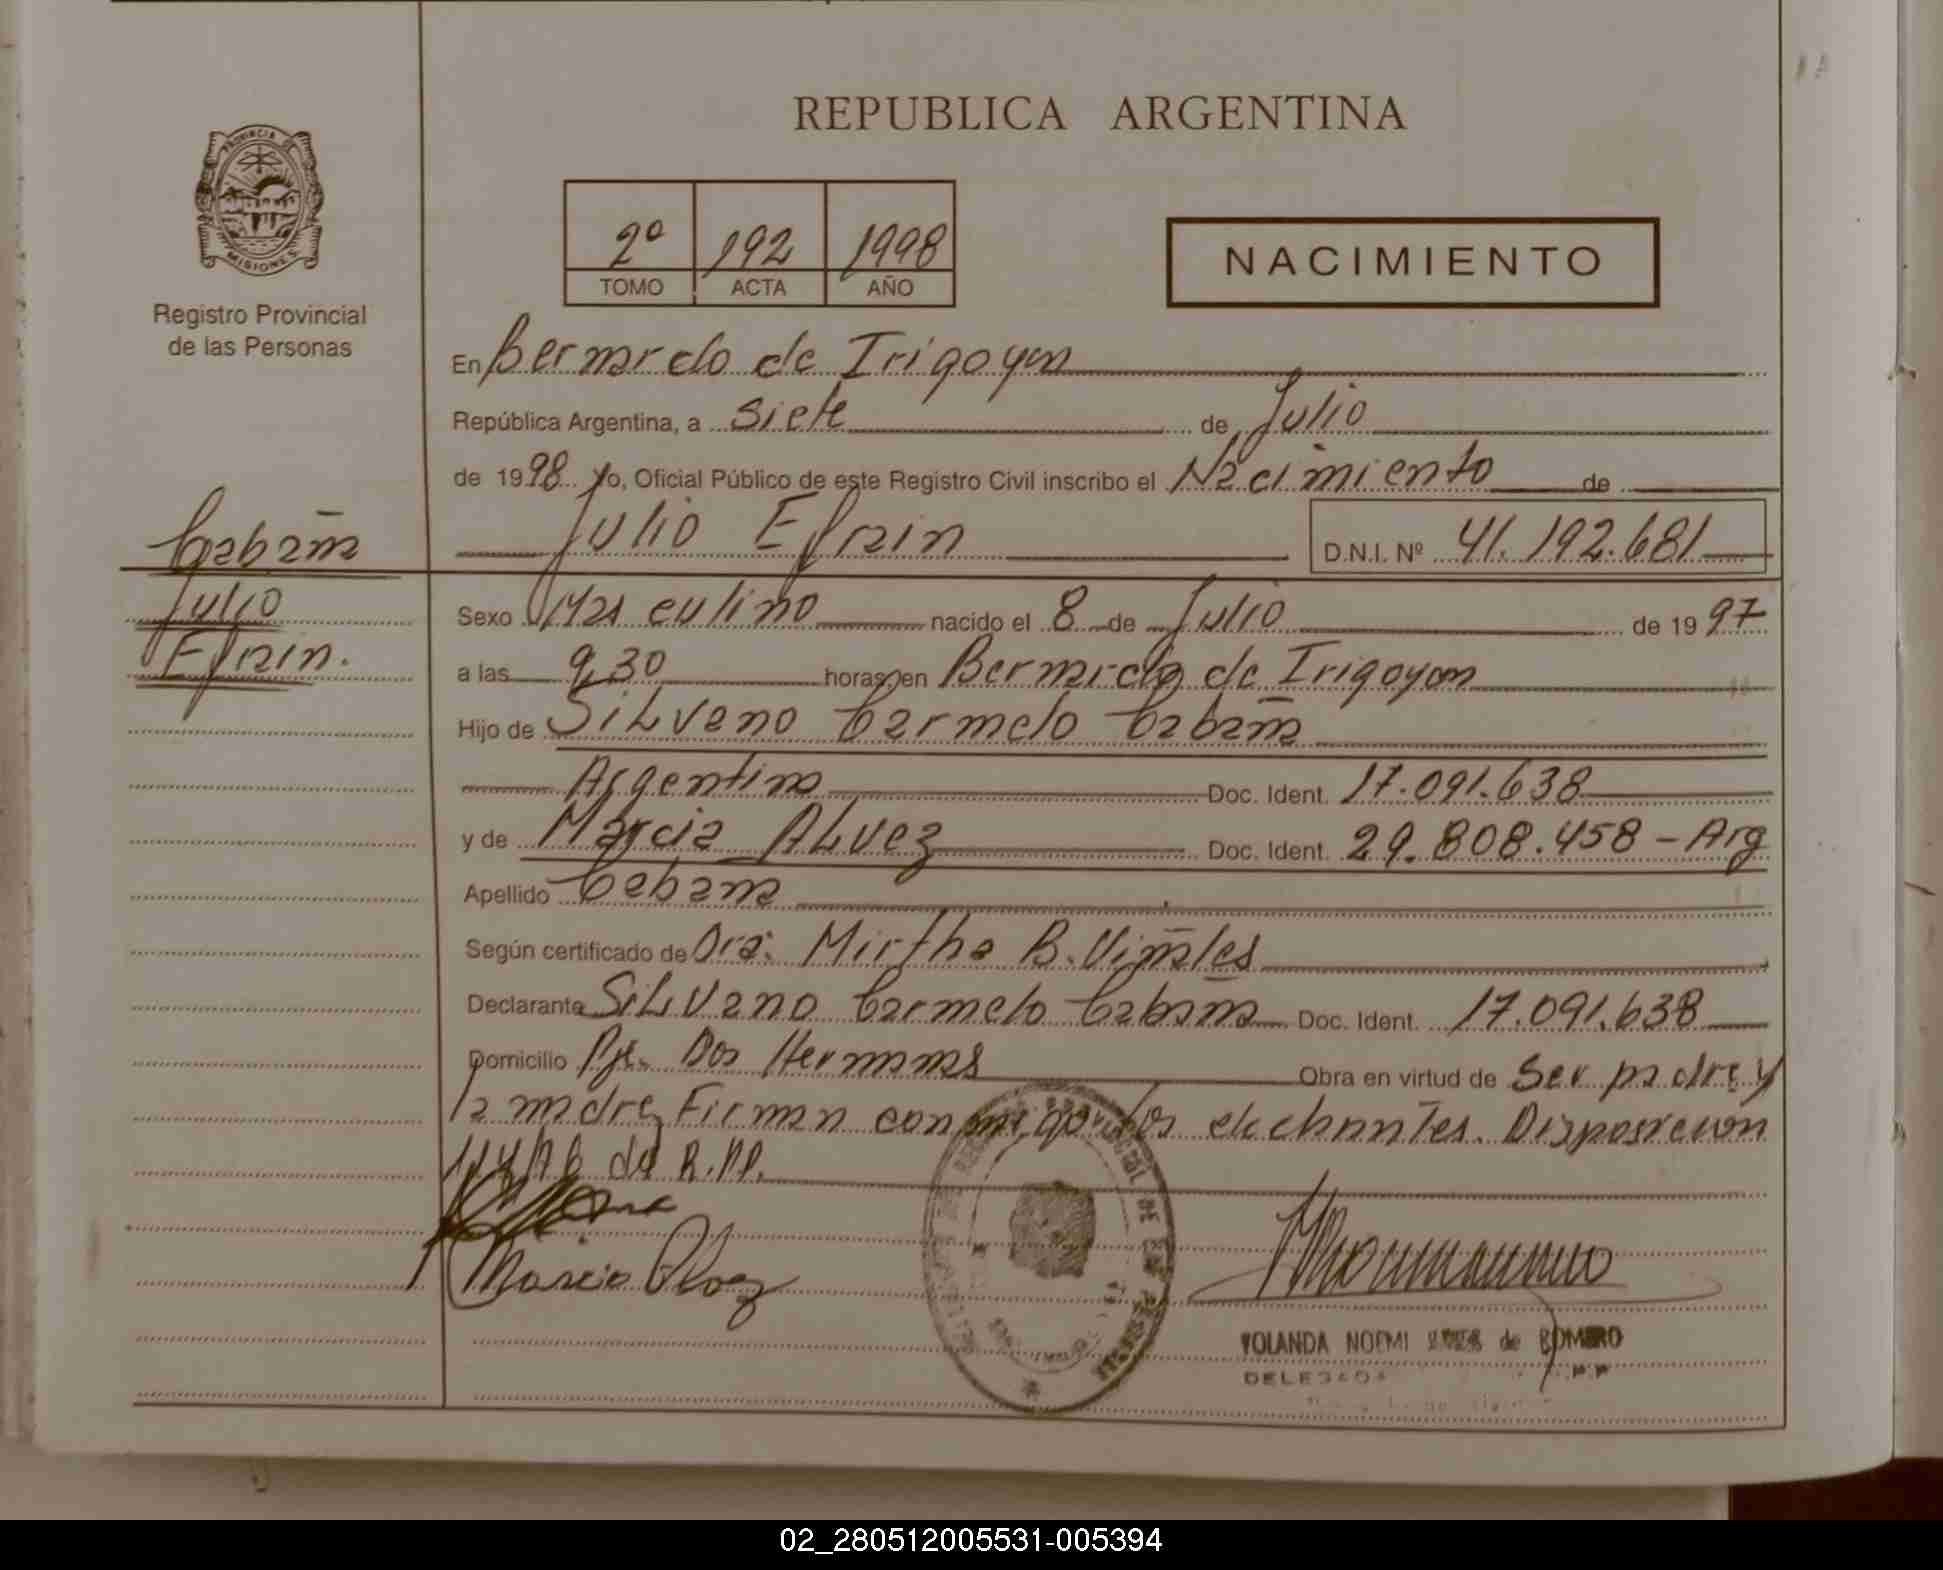 REPUBLICA ARGENTINA
PROVINCIA
MISIONES
Registro Provincial
de las Personas
2º 192 1998
TOMO ACTA AÑO
NACIMIENTO
En Bernardo de Irigoyen
República Argentina, a siete de Julio
de 1998 Yo, Oficial Público de este Registro Civil inscribo el Nacimiento de
Julio Efrain D.N.I. Nº 41.192.681
Cabaña
Julio
Efrain.
Sexo Masculino nacido el 8 de Julio de 1997
a las 9,30 horas, en Bernardo de Irigoyen
Hijo de Silvano Carmelo Cabaña
Argentino Doc. Ident. 17.091.638
y de Marcia Alvez Doc. Ident. 29.808.458 - Arg
Apellido Cabana
Según certificado de Dra: Mirtha B. Viñales
Declarante Silvano Carmelo Cabaña Doc. Ident. 17.091.638
Domicilio Pje. Dos Hermanas Obra en virtud de Ser padre y
la madre, Firman conmigo los declarantes. Disposicion
de R.P.P.
Marcia Alvez
YOLANDA NOEMI de ROMERO
DELEGADA
02_280512005531-005394